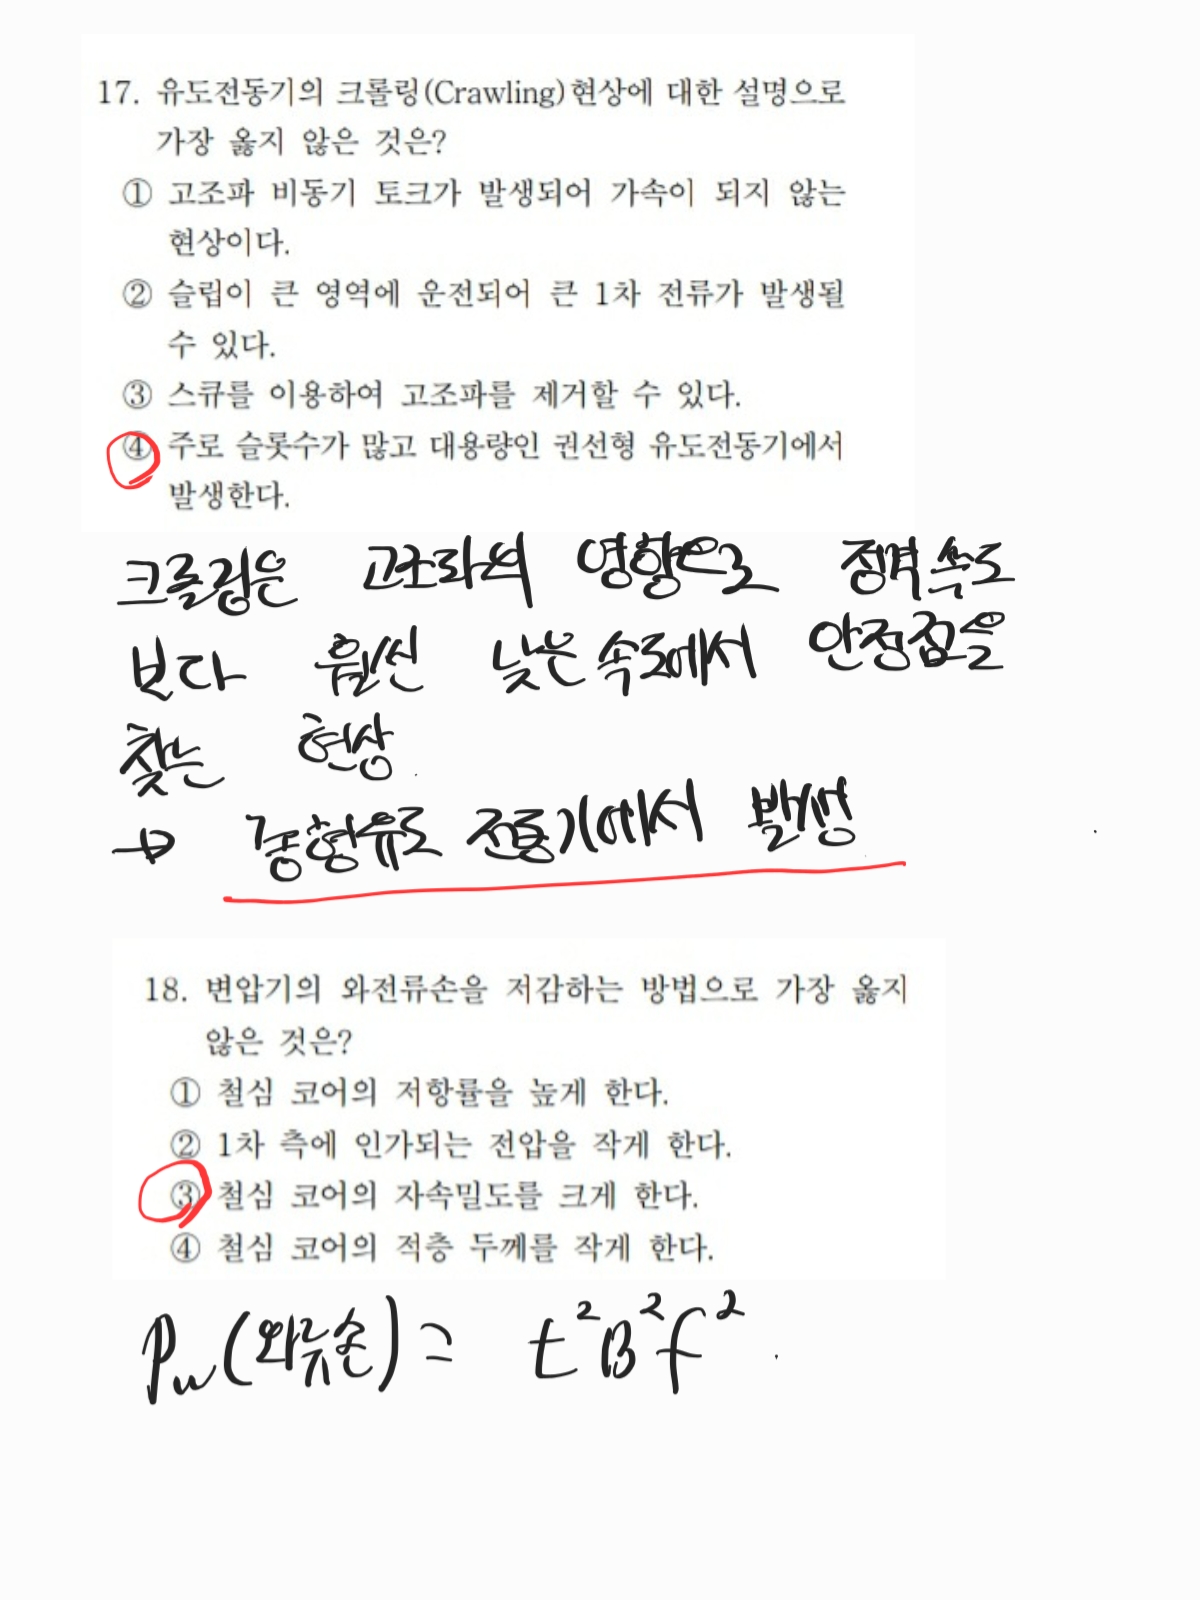 17. 유도전동기의 크롤링(Crawling)현상에 대한 설명으로
가장 옳지 않은 것은?
① 고조파 비동기 토크가 발생되어 가속이 되지 않는
현상이다.
② 슬립이 큰 영역에 운전되어 큰 1차 전류가 발생될
수 있다.
③ 스큐를 이용하여 고조파를 제거할 수 있다.
④ 주로 슬롯수가 많고 대용량인 권선형 유도전동기에서
발생한다.
크롤링은 고조파의 영향으로 정격속도
보다 훨씬 낮은 속도에서 안정점을
찾는 현상
→ 농형유도 전동기에서 발생
18. 변압기의 와전류손을 저감하는 방법으로 가장 옳지
않은 것은?
① 철심 코어의 저항률을 높게 한다.
② 1차 측에 인가되는 전압을 작게 한다.
③ 철심 코어의 자속밀도를 크게 한다.
④ 철심 코어의 적층 두께를 작게 한다.
Pw(와류손) = t²B²f²